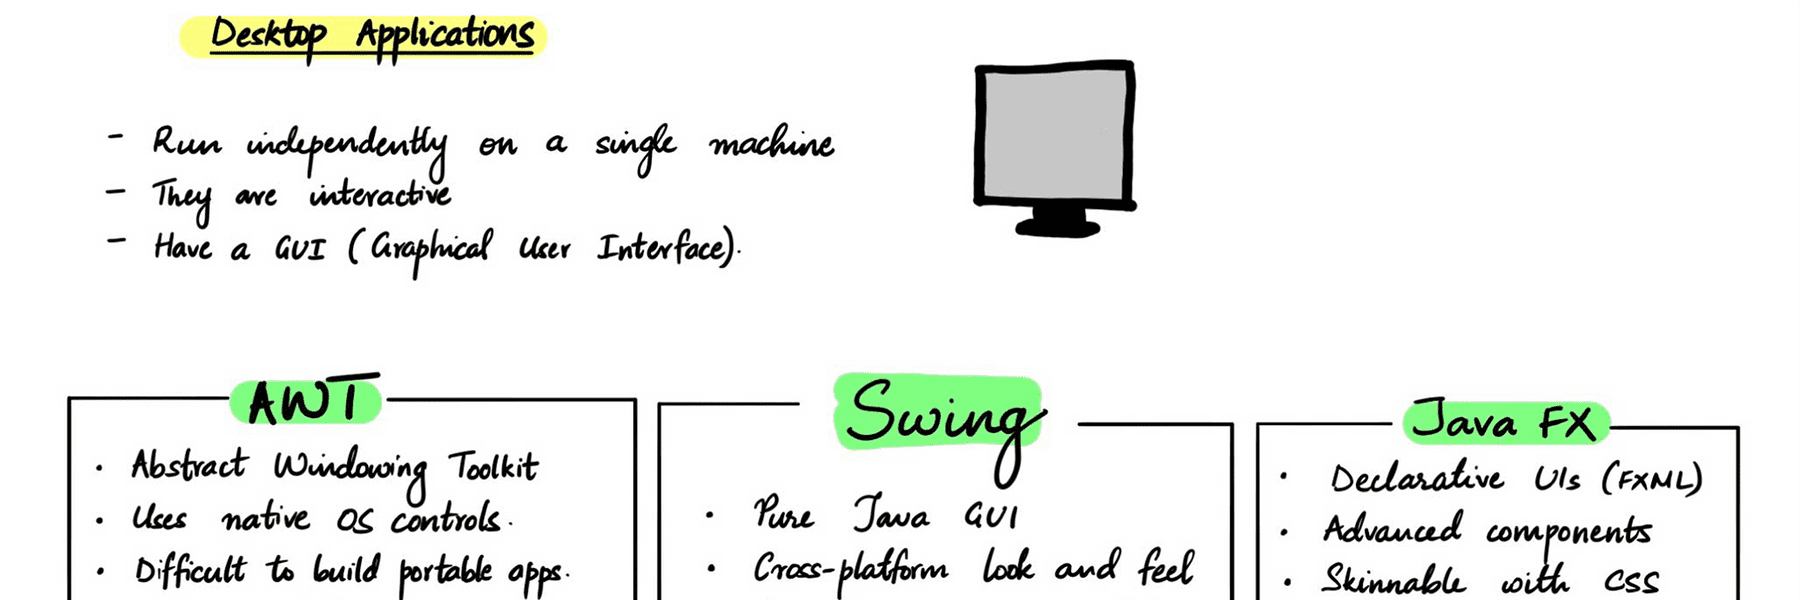 Desktop Applications
- Run independently on a single machine
- They are interactive
- Have a GUI (Graphical User Interface).
AWT
• Abstract Windowing Toolkit
• Uses native OS controls.
• Difficult to build portable apps.
Swing
• Pure Java GUI
• Cross-platform look and feel
Java FX
• Declarative UIs (FXML)
• Advanced components
• Skinnable with CSS